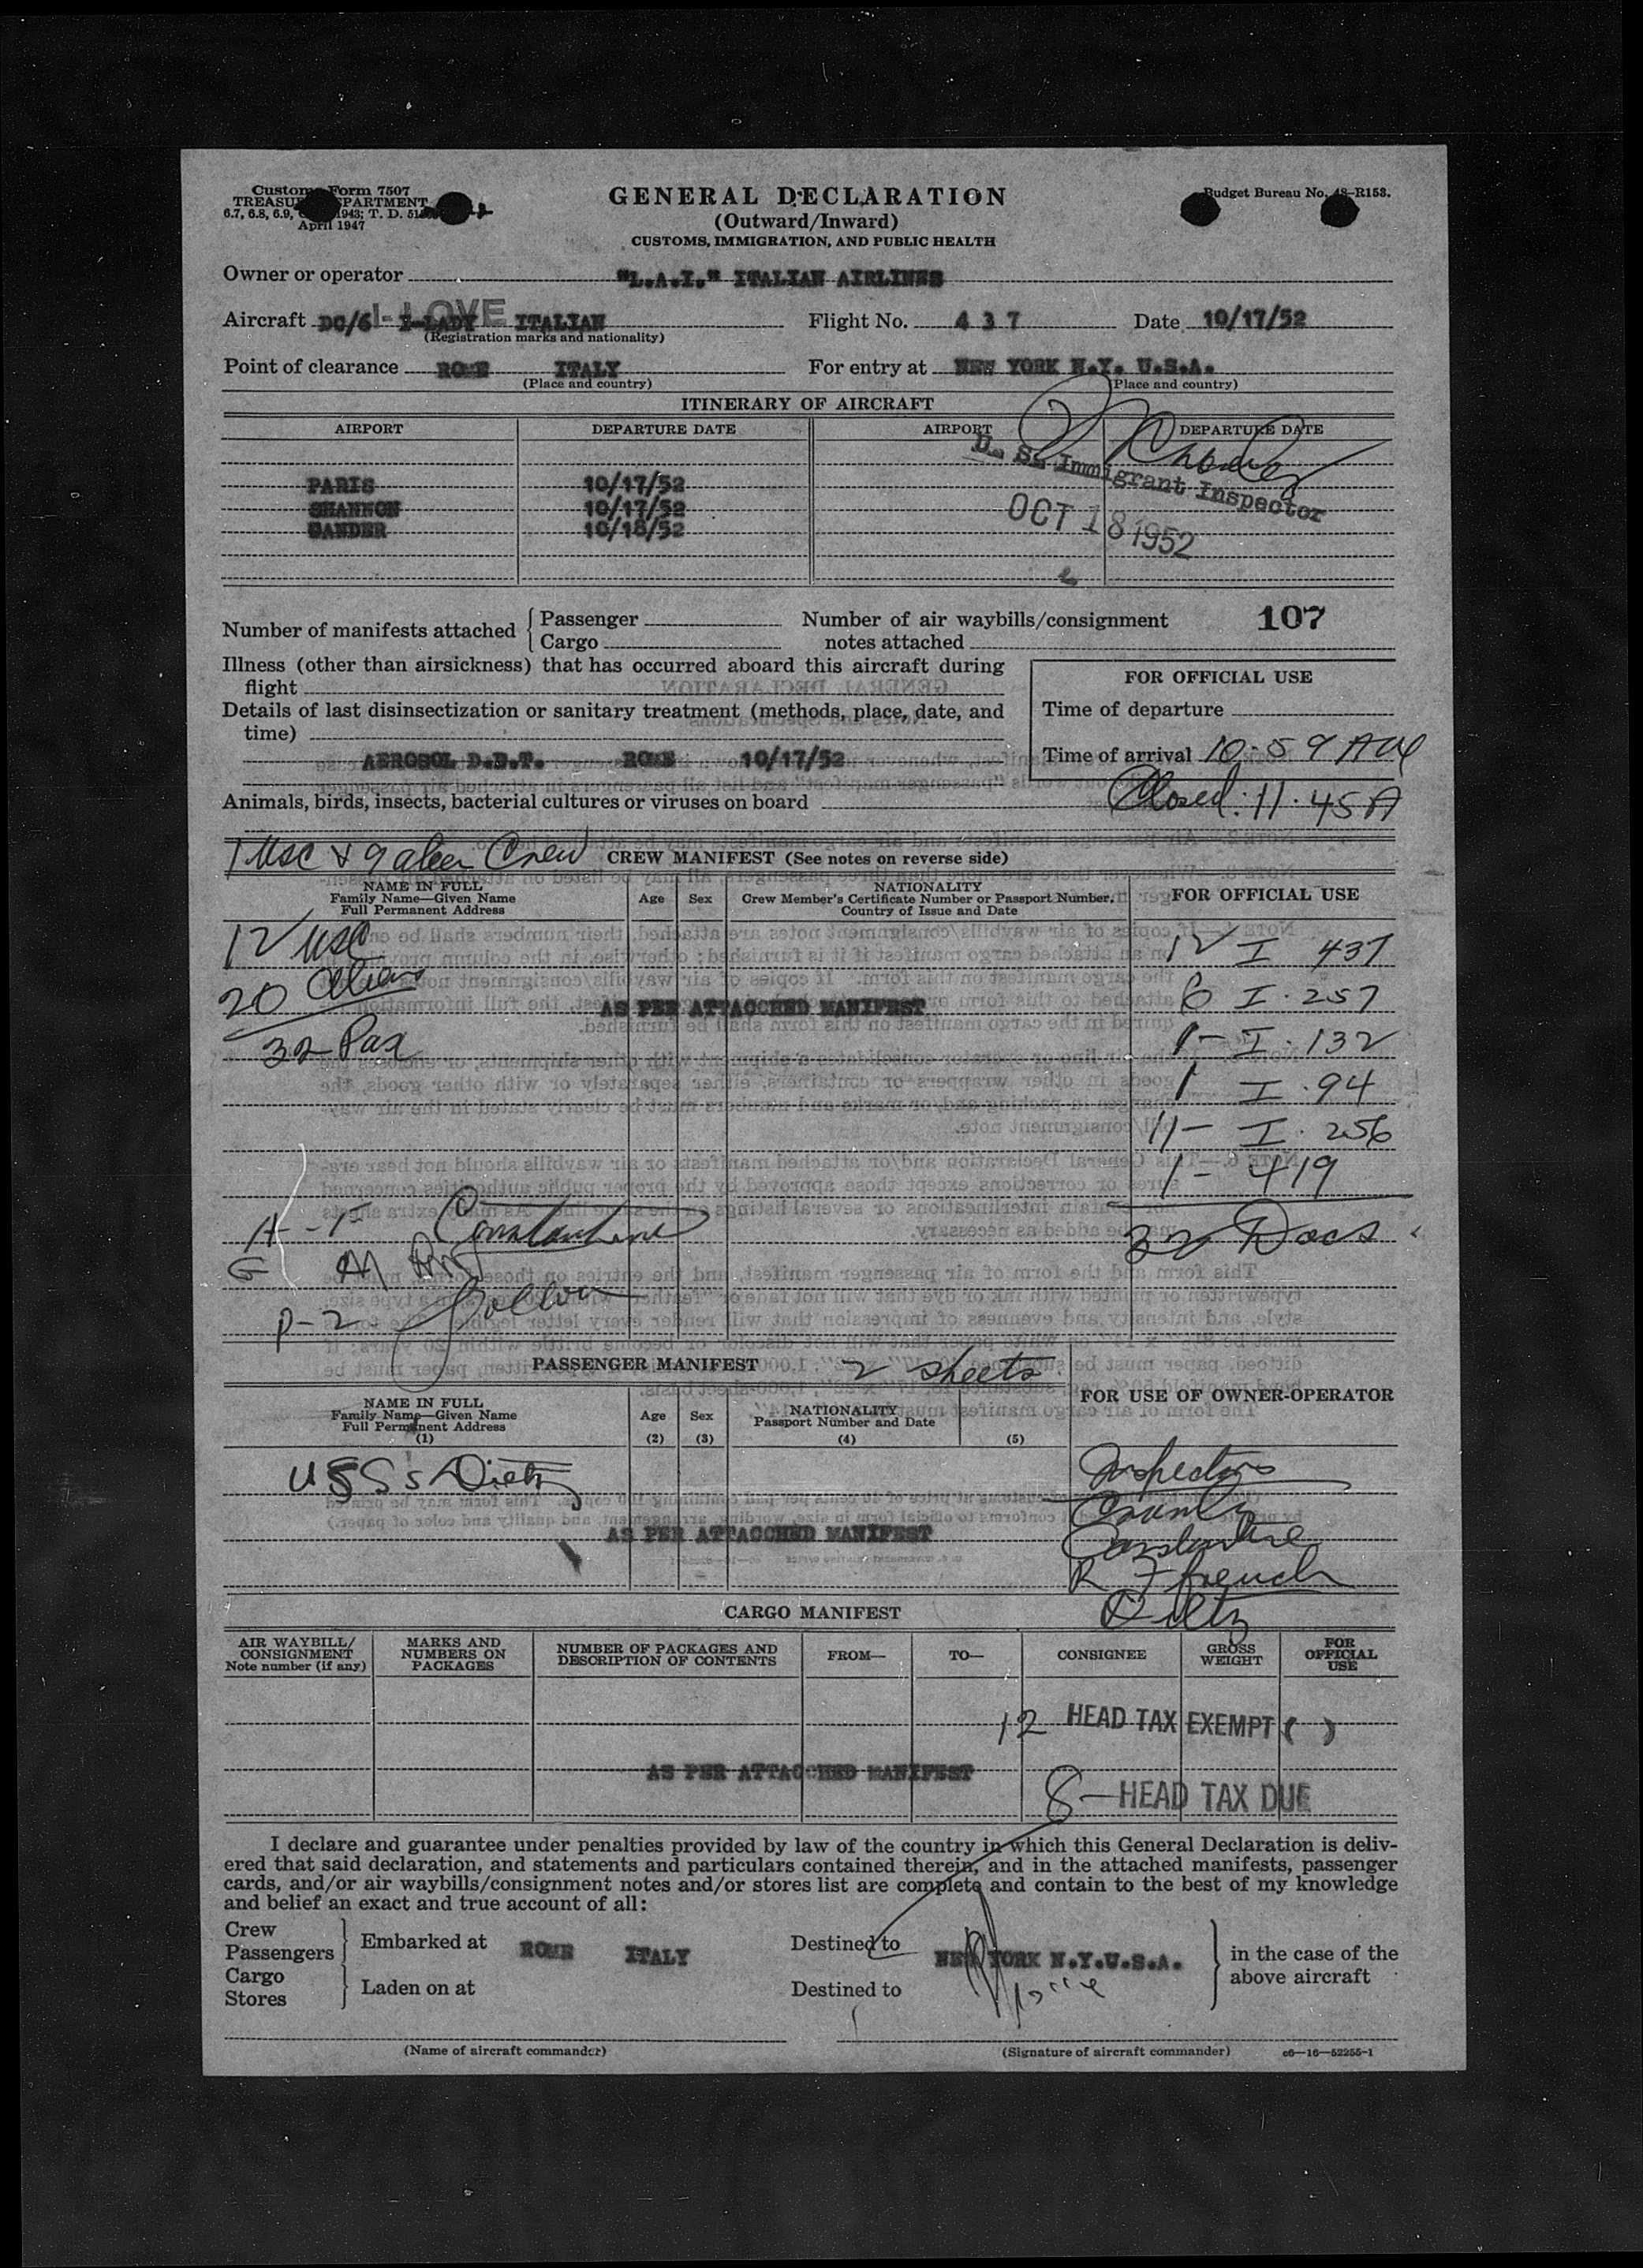 Customs Form 7507
TREASURY DEPARTMENT
6.7, 6.8, 6.9, 1943; T. D. 51
April 1947
GENERAL DECLARATION
(Outward/Inward)
CUSTOMS, IMMIGRATION, AND PUBLIC HEALTH
Budget Bureau No. 48-R153.
Owner or operator "L.A.I." ITALIAN AIRLINES
I-LOVE
Aircraft DC/6 I-LADY ITALIAN Flight No. 4 3 7 Date 10/17/52
(Registration marks and nationality)
Point of clearance ROME ITALY For entry at NEW YORK N.Y. U.S.A.
(Place and country) (Place and country)
ITINERARY OF AIRCRAFT
AIRPORT DEPARTURE DATE AIRPORT DEPARTURE DATE
U. S. Immigrant Inspector
PARIS 10/17/52
SHANNON 10/17/52
GANDER 10/18/52
OCT 18 1952
Number of manifests attached { Passenger
Cargo
Number of air waybills/consignment
notes attached
107
Illness (other than airsickness) that has occurred aboard this aircraft during
flight
Details of last disinsectization or sanitary treatment (methods, place, date, and
time)
AEROSOL D.D.T. ROME 10/17/52
FOR OFFICIAL USE
Time of departure
Time of arrival 10:59 AM
Closed: 11.45A
Animals, birds, insects, bacterial cultures or viruses on board
1 USC & 9 alien Crew CREW MANIFEST (See notes on reverse side)
NAME IN FULL
Family Name—Given Name
Full Permanent Address
Age Sex
NATIONALITY
Crew Member's Certificate Number or Passport Number,
Country of Issue and Date
FOR OFFICIAL USE
12 USC 12 I 437
20 Aliens 6 I. 257
AS PER ATTACCHED MANIFEST
32 Pax 1- I. 132
1 I. 94
11- I. 256
1- 419
32 Docs.
A - 1- Constantine
G
P-2
PASSENGER MANIFEST 2 sheets
FOR USE OF OWNER-OPERATOR
NAME IN FULL
Family Name—Given Name
Full Permanent Address
(1)
Age
(2)
Sex
(3)
NATIONALITY
Passport Number and Date
(4) (5)
Dietz
Inspectors
Constantine
R F ffrench
Dietz
AS PER ATTACCHED MANIFEST
CARGO MANIFEST
AIR WAYBILL/
CONSIGNMENT
Note number (if any)
MARKS AND
NUMBERS ON
PACKAGES
NUMBER OF PACKAGES AND
DESCRIPTION OF CONTENTS
FROM—
TO—
CONSIGNEE
GROSS
WEIGHT
FOR
OFFICIAL
USE
12 HEAD TAX EXEMPT ( )
AS PER ATTACCHED MANIFEST
8- HEAD TAX DUE
I declare and guarantee under penalties provided by law of the country in which this General Declaration is deliv-
ered that said declaration, and statements and particulars contained therein, and in the attached manifests, passenger
cards, and/or air waybills/consignment notes and/or stores list are complete and contain to the best of my knowledge
and belief an exact and true account of all:
Crew
Passengers } Embarked at ROME ITALY Destined to NEW YORK N.Y.U.S.A.
Cargo
Stores } Laden on at Destined to
in the case of the
above aircraft
(Name of aircraft commander) (Signature of aircraft commander) c6—16—52255-1